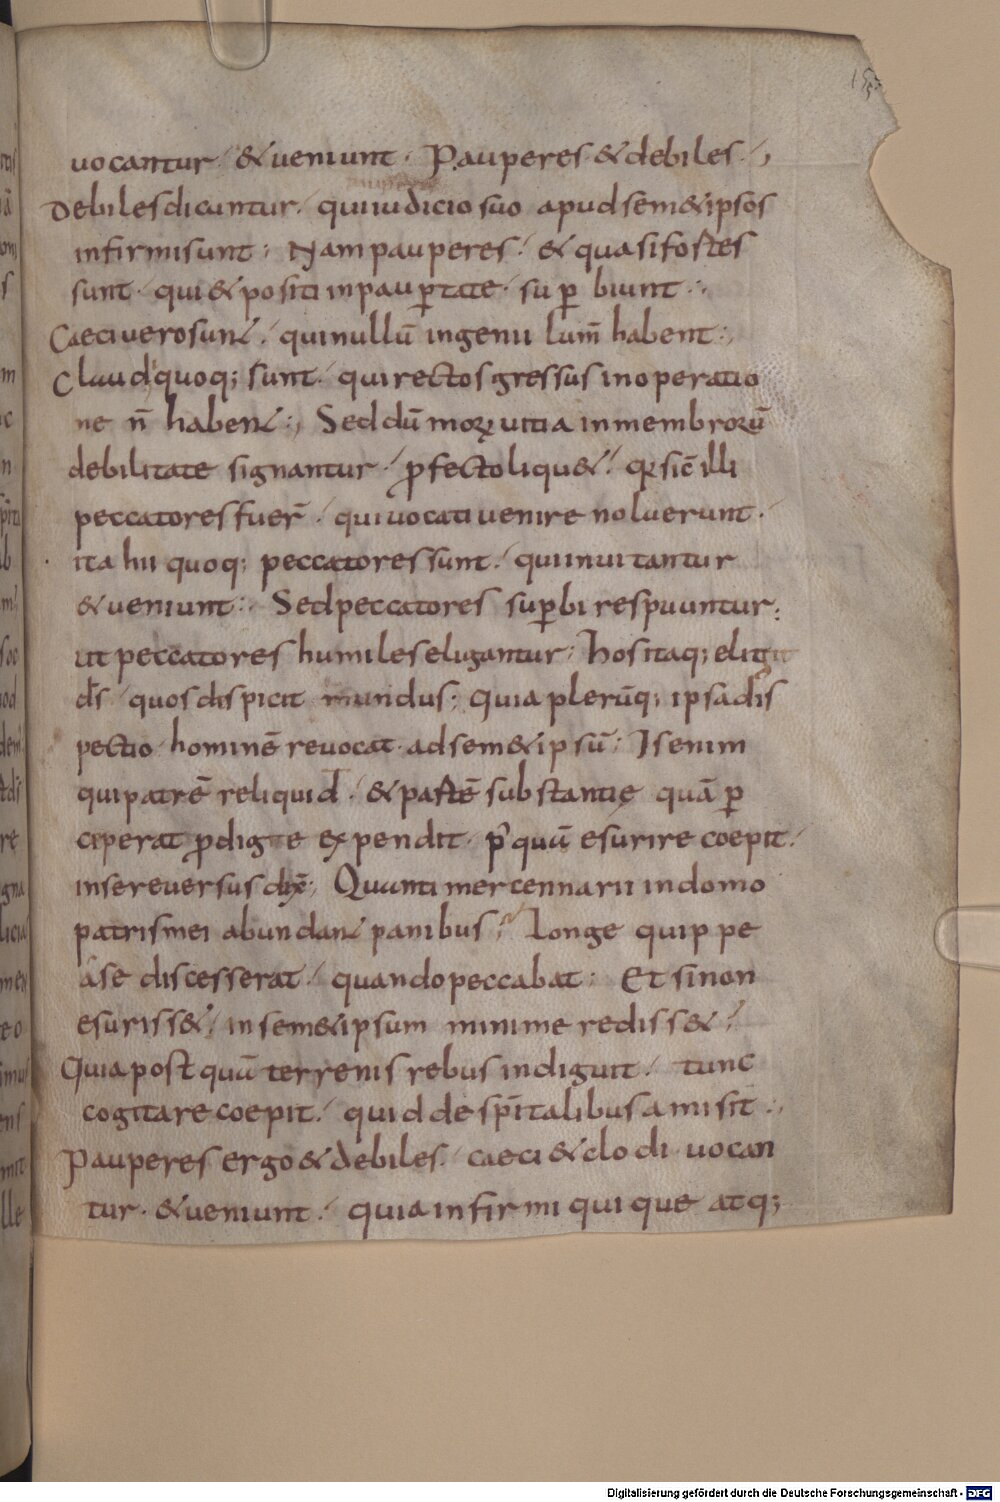 155
uocantur ⁊ &ueniunt · Pauperes · &debiles ·,
Debilesdicuntur · quiiudicio suo apudsem&ipsos
infirmisunt : Nampauperes · & quasifortes
sunt · qui&positi inpaup̄tate · sup̄ biunt ·.
Caeciuerosun̄t · quinullū ingenii lum̄ habent :,
Claudiquoq; sunt · quirectosgressus inoperatio
ne n̄ haben̄t :, Seddū morꝝ uitia inmembrorū
debilitate signantur · ꝓfectoliqu& · qꝛsic̄ illi
peccatoresfuer̄ · quiuocatiuenire noluerunt ·
ita hii quoq; peccatoressunt · quiinuitantur
&ueniunt : Sedpeccatores sup̄birespuuntur ;
ut peccatores humileseligantur : hositaq; eligit
d̄s · quosdispicit mundus ; Quia plerūq; ipsadis
pectio · hominē reuocat · adsem&ipsū : Isenim
quipatrē reliquid · &partē substantię quā p̄
ceperat ꝓdigę expendit · p̄ quā esurire coepit ·
insereuersus dix̄ :, Quanti mercennarii indomo
patrismei abundan̄t panibus ; Longe quippe
ase discesserat · quandopeccabat : Et sinon
esuriss& · insem&ipsum minime rediss& ·
Quiapost quā terrenis rebus indiguit · tunc
cogitare coepit · quid de sp̄italibus amisit :,
Pauperes ergo &debiles · caeci &clodi · uocan
tur · &ueniunt · quia infirmi quique atq;
Digitalisierung gefördert durch die Deutsche Forschungsgemeinschaft - DFG